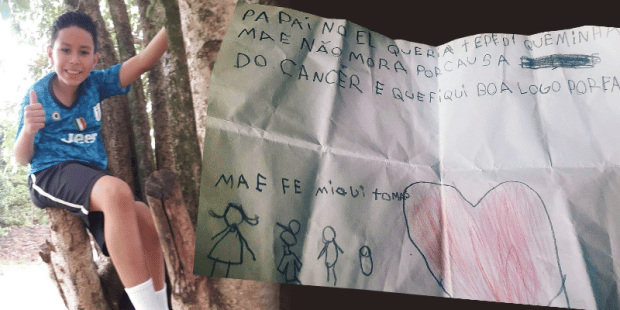 Jeep
PA PAI NO EL QUERIA tEPEDI QUEMINHA
MAE NÃO MORA PORCAUSA
DO CÂNCER E QUEFIQUI BOA LOGO PORFA
MAE FE miqui tomas